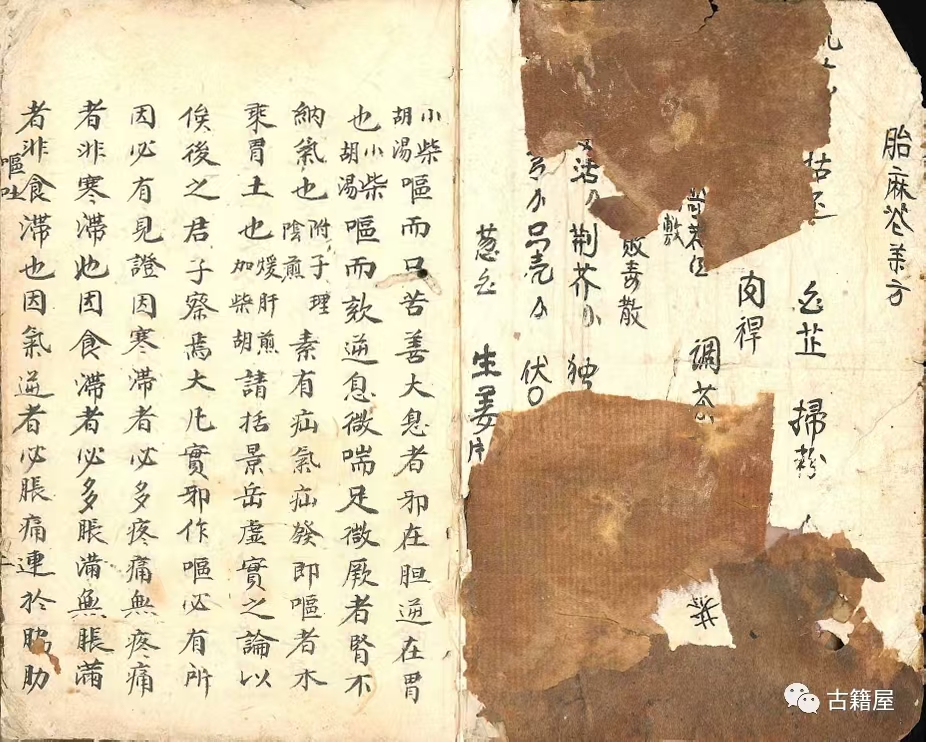 胎麻方
白芷 掃粉
肉桿
調茶
敷
敗毒散
活 荆芥 独
壳 伏
葱白 生姜片
小柴胡湯嘔而口苦善大息者邪在胆逆在胃
也小柴胡湯嘔而欬逆息微喘足微厥者腎不
納氣也附子理陰煎素有疝氣疝發即嘔者木
乘胃土也煖肝煎加柴胡請括景岳虛實之論以
俟後之君子察焉大凡實邪作嘔必有所
因必有見證因寒滯者必多疼痛無疼痛
者非寒滯也因食滯者必多脹滿無脹滿
者非食滯也因氣逆者必脹痛連於脇肋
嘔吐
一
古籍屋